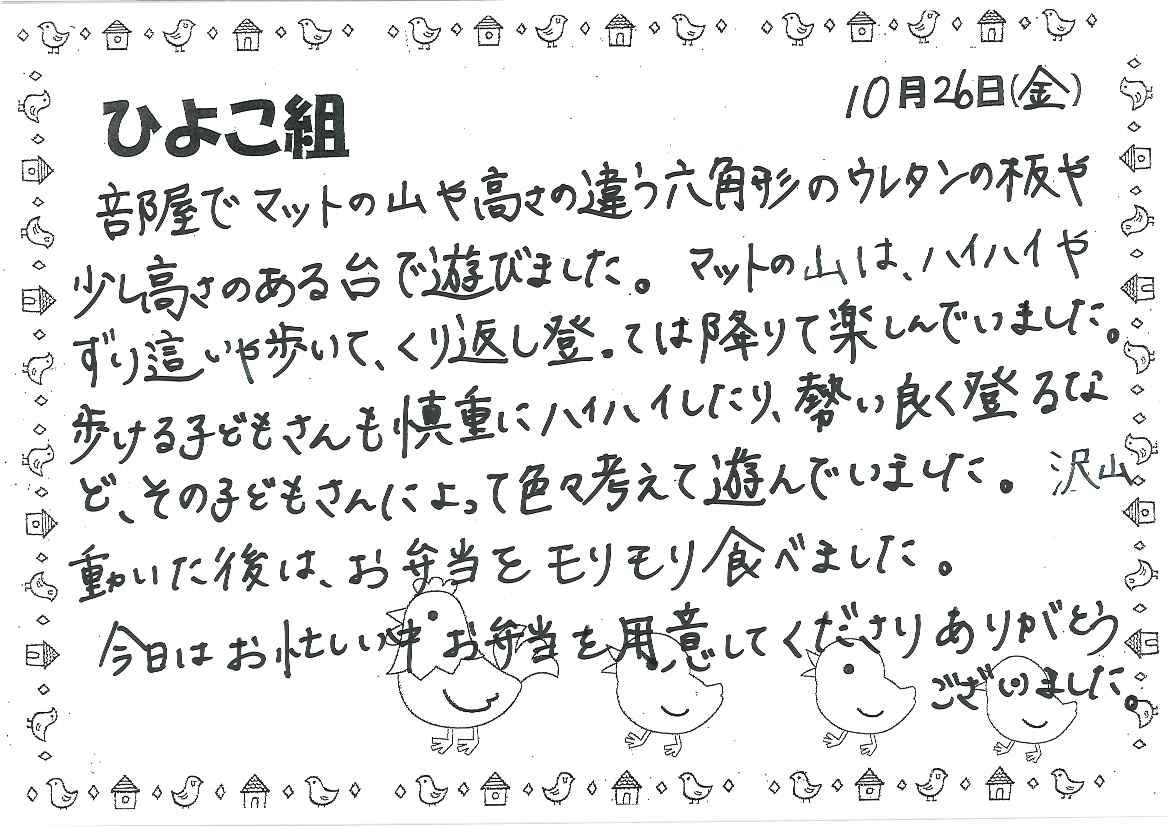 10月26日(金)
ひよこ組
部屋でマットの山や高さの違う六角形のウレタンの板や
少し高さのある台で遊びました。マットの山は、ハイハイや
ずり這いや歩いて、くり返し登っては降りて楽しんでいました。
歩ける子どもさんも慎重にハイハイしたり、勢い良く登るな
ど、その子どもさんによって色々考えて遊んでいました。沢山
動いた後は、お弁当をモリモリ食べました。
今日はお忙しい中お弁当を用意してくださりありがとう
ございました。